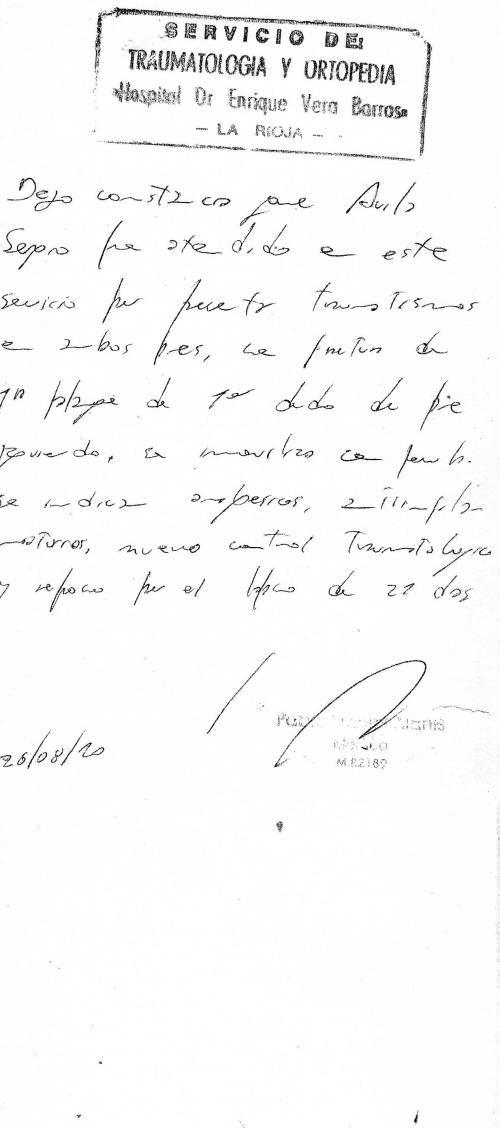 SERVICIO DE:
TRAUMATOLOGIA Y ORTOPEDIA
«Hospital Dr Enrique Vera Barros»
- LA RIOJA -
Dejo constancia que Avila
Sergio fue atendido en este
servicio por presentar traumatismos
en ambos pies, con fractura de
1ra falange de 1er dedo de pie
izquierdo, se inmoviliza con
se indica analgesicos, antiinfla
matorios, nuevo control Traumatologico
y reposo por el lapso de 21 dias
Pablo
MEDICO
M.P.2189
26/08/20